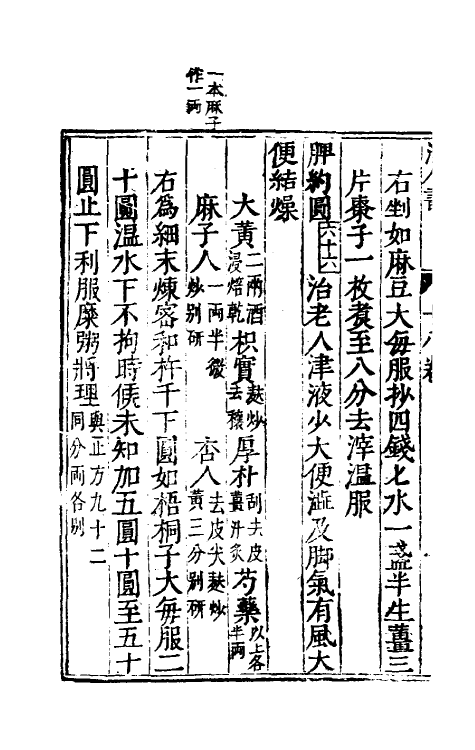 一本麻子
作一兩
右剉如麻豆大每服抄四錢匕水一盞半生薑三
片棗子一枚煑至八分去滓温服
脾約圓六十六治老人津液少大便澁及脚氣有風大
便結燥
大黃二兩酒浸焙乾枳實麩炒去穰厚朴刮去皮薑汁炙芍藥以上各半兩
麻子人一兩半微炒别研杏人去皮尖麩炒黃三分别研
右爲細末煉宻和杵千下圓如梧桐子大每服二
十圓温水下不拘時候未知加五圓十圓至五十
圓止下利服糜粥將理與正方九十二同分兩各别